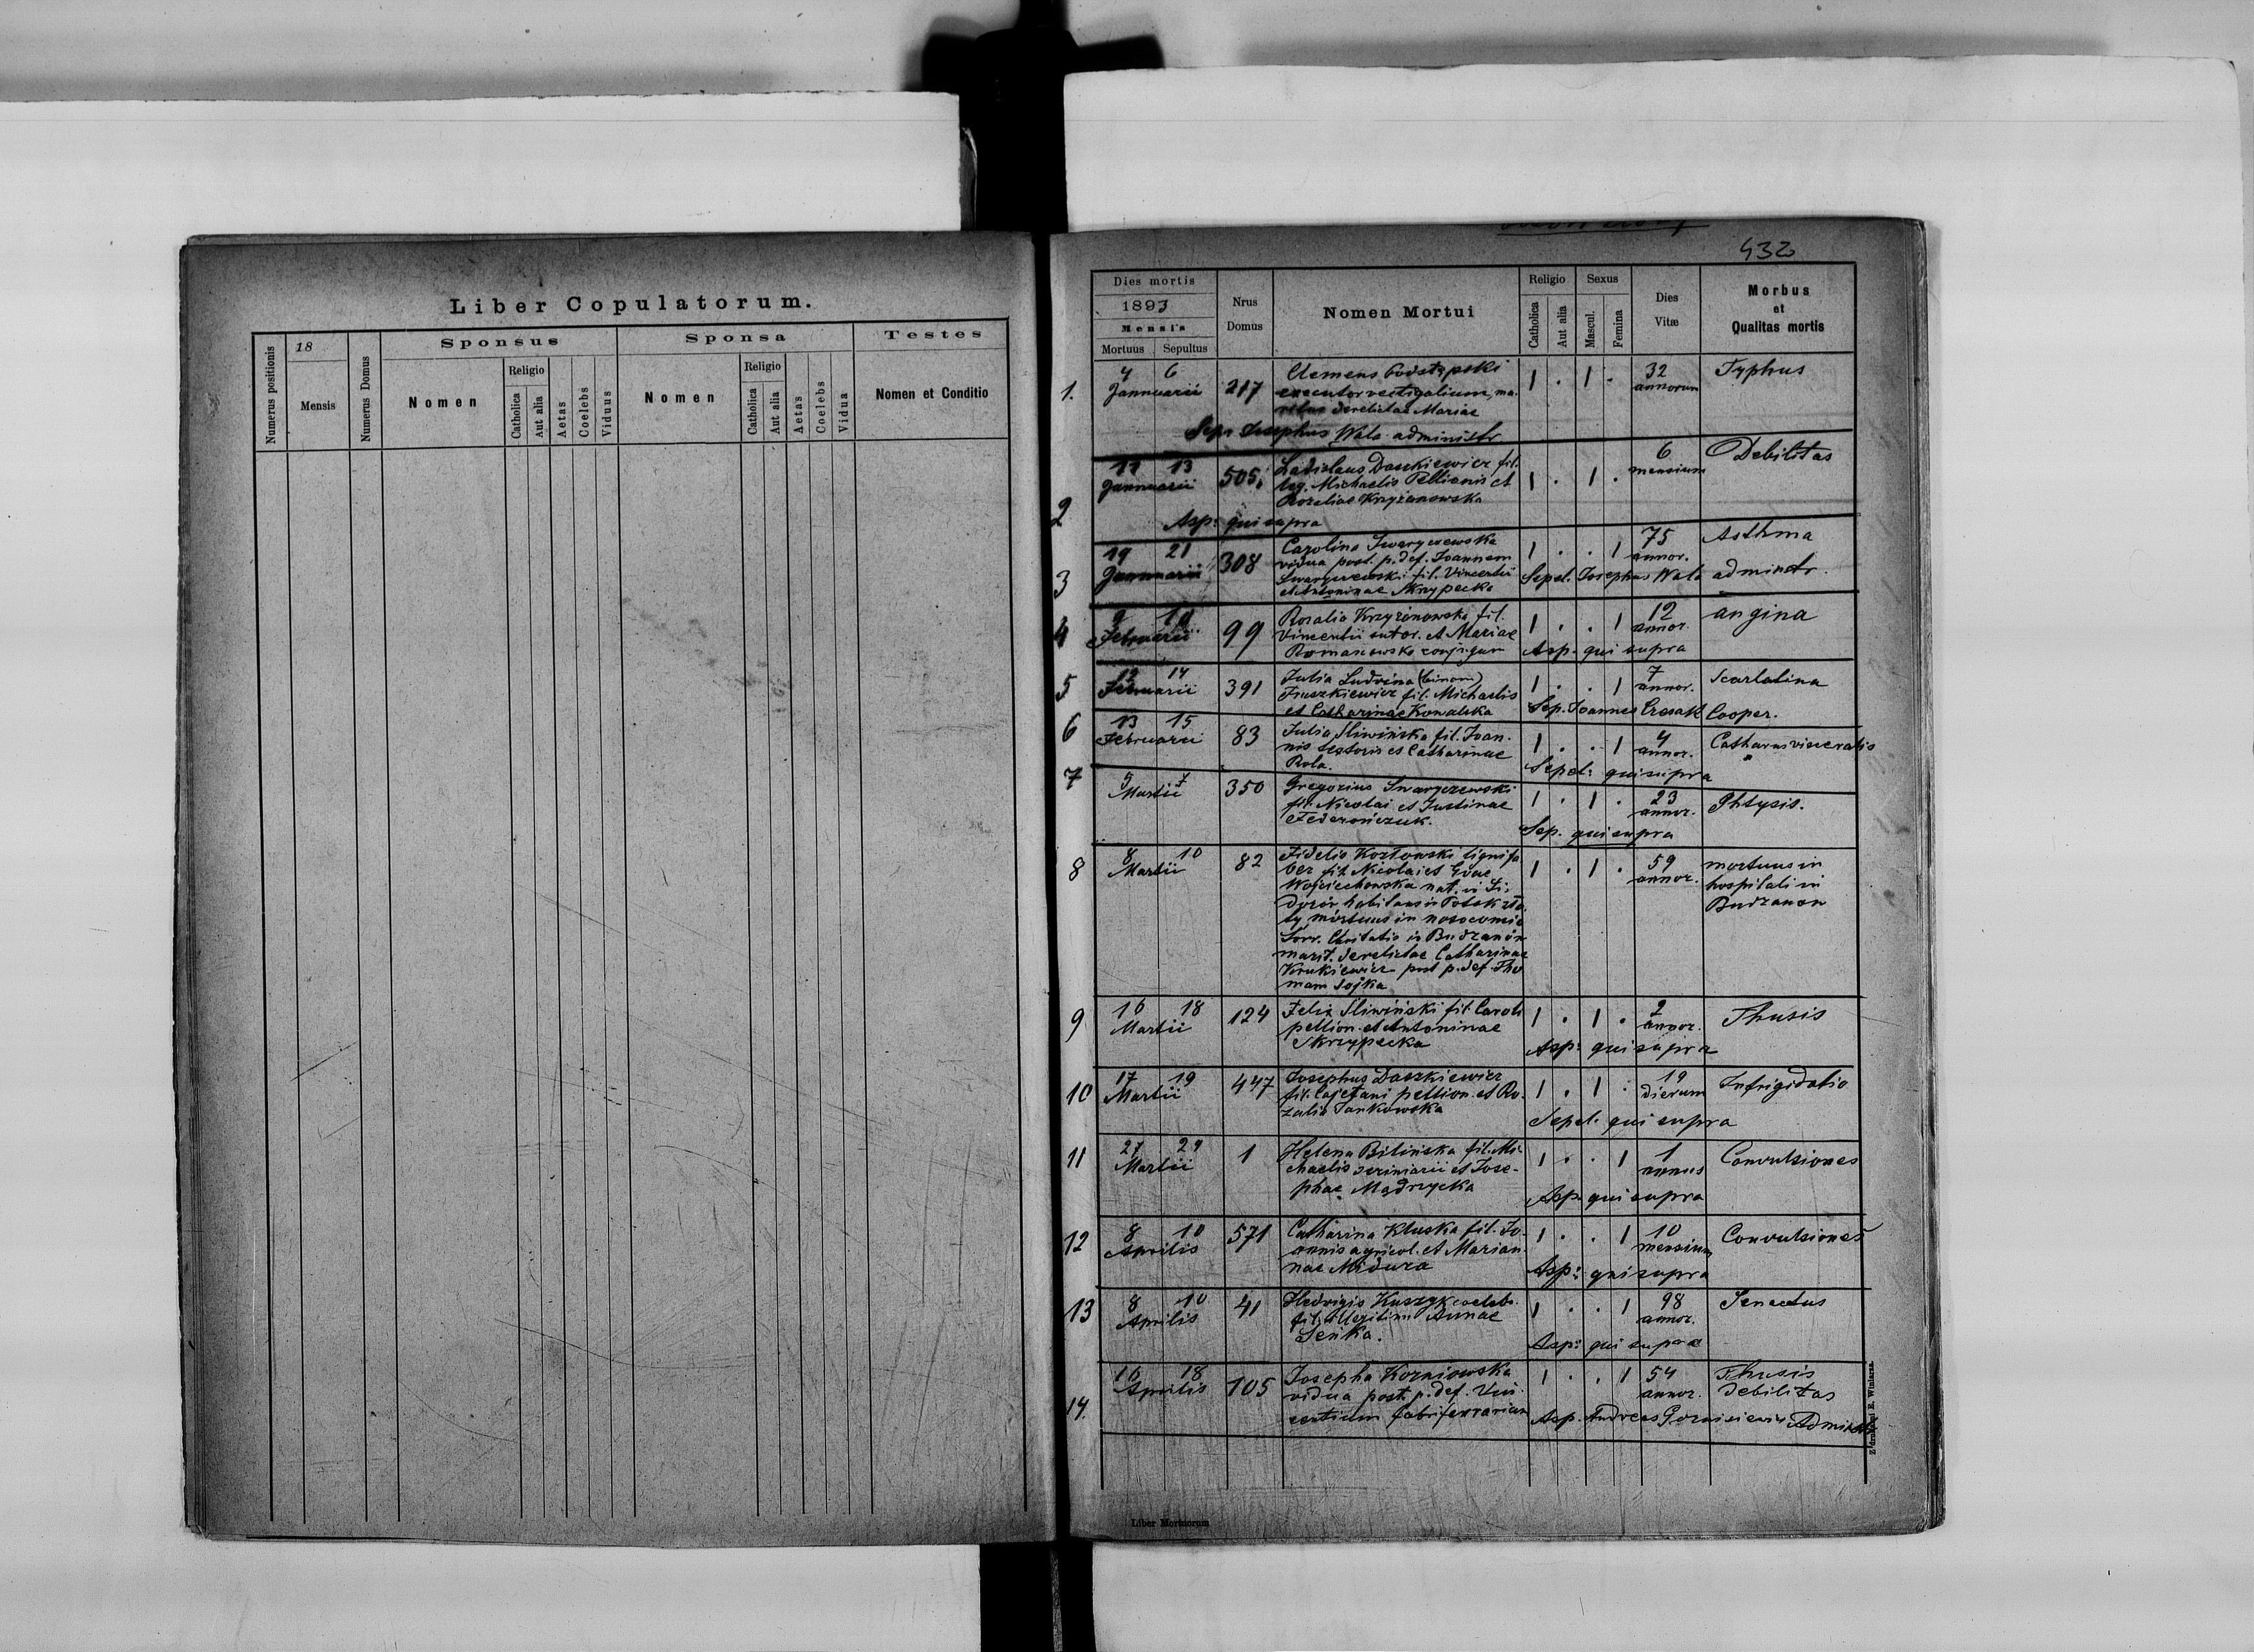 Liber Copulatorum.
Numerus positionis
18
Mensis
Numerus Domus
Sponsus
Nomen
Religio
Catholica
Aut alia
Aetas
Coelebs
Viduus
Sponsa
Nomen
Religio
Catholica
Aut alia
Aetas
Coelebs
Vidua
Testes
Nomen et Conditio
432
Dies mortis
1893
Mensis
Mortuus Sepultus
Nrus
Domus
Nomen Mortui
Religio
Catholica
Aut alia
Sexus
Mascul.
Femina
Dies
Vitæ
Morbus
et
Qualitas mortis
1.
4 6
Jannuarii
217
Clemens Podstępski
executor vectigalium, ma-
ritus derelictae Mariae
1 . 1 .
32
annorum
Typhus
Sep. Josephus Wala administr
2
11 13
Jannuarii
505.
Ladislaus Daszkiewicz fil.
leg. Michaelis Pellionis et
Rozaliae Krzyżanowska
1 . 1 .
6
mensium
Debilitas
Asp: qui supra
3
19 21
Jannuarii
308
Carolina Swaryczewska
vidua post. p. def. Joannem
Swaryczewski fil. Vincentii
et Antoninae Skrzypecka
1 . . 1
75
annor.
Asthma
Sepel. Josephus Wala adminstr.
4
9 10
Februarii
99
Rozalia Krzyżanowska fil.
Vincentii sutor. et Mariae
Romanowska conjugum
1 . . 1
12
annor.
angina
Asp. qui supra
5
12 14
Februarii
391
Julia Ludvina (binom)
Juszkiewicz fil. Michaelis
et Catharinae Kowalska
1 . . 1
7
annor.
Scarlatina
Sep. Joannes Cooper.
6
13 15
Februarii
83
Julia Śliwińska fil. Joan-
nis textoris et Catharinae
Rola.
1 . . 1
4
annor.
Catharus visceralis
Sepel: qui supra
7
5 7
Martii
350
Gregorius Swaryczewski
fil. Nicolai et Justinae
Federończuk.
1 . 1 .
23
annor.
Phtysis.
Sep. qui supra
8
8 10
Martii
82
Fidelis Kozłowski lignifa
ber fil. Nicolai et Evae
Wojciechowska nat. in Si-
dorów habitans in Potok zło-
ty mortuus in nosocomio
Sorr. Charitatis in Budzanów
marit. derelictae Catharinae
Krukiewicz post p. def. Tho
mam Sojka
1 . 1 .
59
annor.
mortuus in
hospitali in
Budzanow
9
16 18
Martii
124
Felix Śliwiński fil. Caroli
pellion. et Antoninae
Skrzypecka
1 . 1 .
2
annor.
Thusis
Asp: qui supra
10
17 19
Martii
447
Josephus Daszkiewicz
fil. Cajetani pellion. et Ro-
zalia Jankowska
1 . 1 .
19
dierum
Infrigidatio
Sepel. qui supra
11
27 29
Martii
1
Helena Bilińska fil. Mi-
chaelis scriniarii et Jose-
phae Mądrzycka
1 . . 1
1
annus
Convulsiones
Asp. qui supra
12
8 10
Aprilis
571
Catharina Kluska fil. Jo-
annis agricol. et Marian-
nae Midura
1 . . 1
10
mensium
Convulsiones
Asp: qui supra
13
8 10
Aprilis
41
Hedvigis Kuszyk coelebs.
fil. illegitima Annae
Seńka.
1 . . 1
98
annor.
Senectus
Asp: qui supra
14.
16 18
Aprilis
105
Josepha Korniowska
vidua post. p. def. Vin-
centium fabriferrarium
1 . . 1
54
annor.
Thusis
debilitas
Asp. Andreas Administr
Liber Mortuorum
Z drukarni E. Winiarza.